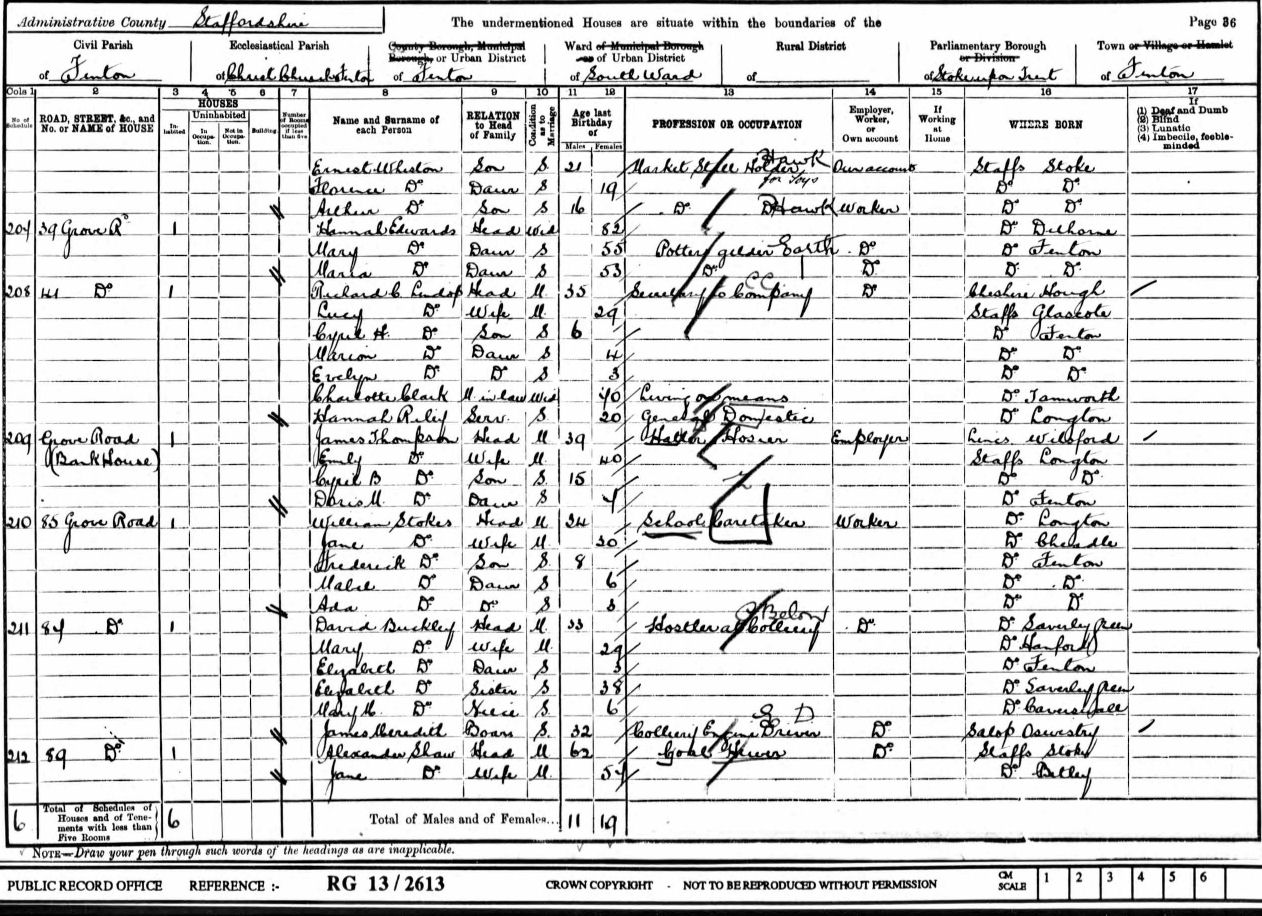 Administrative County Staffordshire The undermentioned Houses are situate within the boundaries of the Page 36
Civil Parish Ecclesiastical Parish County Borough, Municipal Borough, or Urban District Ward of Municipal Borough or of Urban District Rural District Parliamentary Borough or Division Town or Village or Hamlet
of Fenton of Christ Church Fenton of Fenton of South Ward of of Stoke upon Trent of Fenton
Cols 1 2 3 4 5 6 7 8 9 10 11 12 13 14 15 16 17
No. of Schedule ROAD, STREET, &c., and No. or NAME of HOUSE HOUSES Inhabited Uninhabited In Occupation. Not in Occupation. Building. Number of Rooms occupied if less than five Name and Surname of each Person RELATION to Head of Family Condition as to Marriage Age last Birthday of Males Females PROFESSION OR OCCUPATION Employer, Worker, or Own account If Working at Home WHERE BORN If (1) Deaf and Dumb (2) Blind (3) Lunatic (4) Imbecile, feeble-minded
Ernest Whiston Son S 21 Market Stall Holder for Toys Hawk Own account Staffs Stoke
Florence Do Daur S 19 Do Do
Arthur Do Son S 16 Do Do Hawk Worker Do Do
207 39 Grove Rd 1 Hannah Edwards Head Wid 82 Do Dilhorne
Mary Do Daur S 55 Pottery gilder Earth Do Do Fenton
Maria Do Daur S 53 Do Do Do Do
208 41 Do 1 Richard C. Lindop Head M. 35 Secretary to Company CC Do Cheshire Hough
Lucy Do Wife M. 29 Staffs Glascote
Cyril H. Do Son S 6 Do Fenton
Marion Do Daur S 4 Do Do
Evelyn Do Do S 3 Do Do
Charlotte Clark M. in law Wid 70 Living on means Do Tamworth
Hannah Serv. S 20 General Domestic Do Longton
209 Grove Road 1 James Thompson Head M 39 Hatter Hosier Employer Lincs Wilsford
(Bank House) Emily Do Wife M. 40 Staffs Longton
Cyril B Do Son S. 15 Do Do
Doris M. Do Daur S 4 Do Fenton
210 85 Grove Road 1 William Stokes Head M 34 School Caretaker Worker Do Longton
Jane Do Wife M. 30 Do Cheadle
Frederick Do Son S. 8 Do Fenton
Mabel Do Daur S 6 Do Do
Ada Do Do S 3 Do Do
211 87 Do 1 David Buckley Head M. 33 Hostler at Colliery Below Do Do Saverley Green
Mary Do Wife M. 29 Do Hanford
Elizabeth Do Daur S 3 Do Fenton
Elizabeth Do Sister S 38 Do Saverley Green
Mary M. Do Niece S. 6 Do Caverswall
James Meredith Boarr S. 32 Colliery Engine Driver Do Salop Oswestry
212 89 Do 1 Alexander Shaw Head M 62 Coal Hewer Do Staffs Stoke
Jane Do Wife M. 57 Do Betley
6 Total of Schedules of Houses and of Tenements with less than Five Rooms 6 Total of Males and of Females... 11 19
NOTE—Draw your pen through such words of the headings as are inapplicable.
PUBLIC RECORD OFFICE REFERENCE :- RG 13/2613 CROWN COPYRIGHT - NOT TO BE REPRODUCED WITHOUT PERMISSION CM SCALE 1 2 3 4 5 6